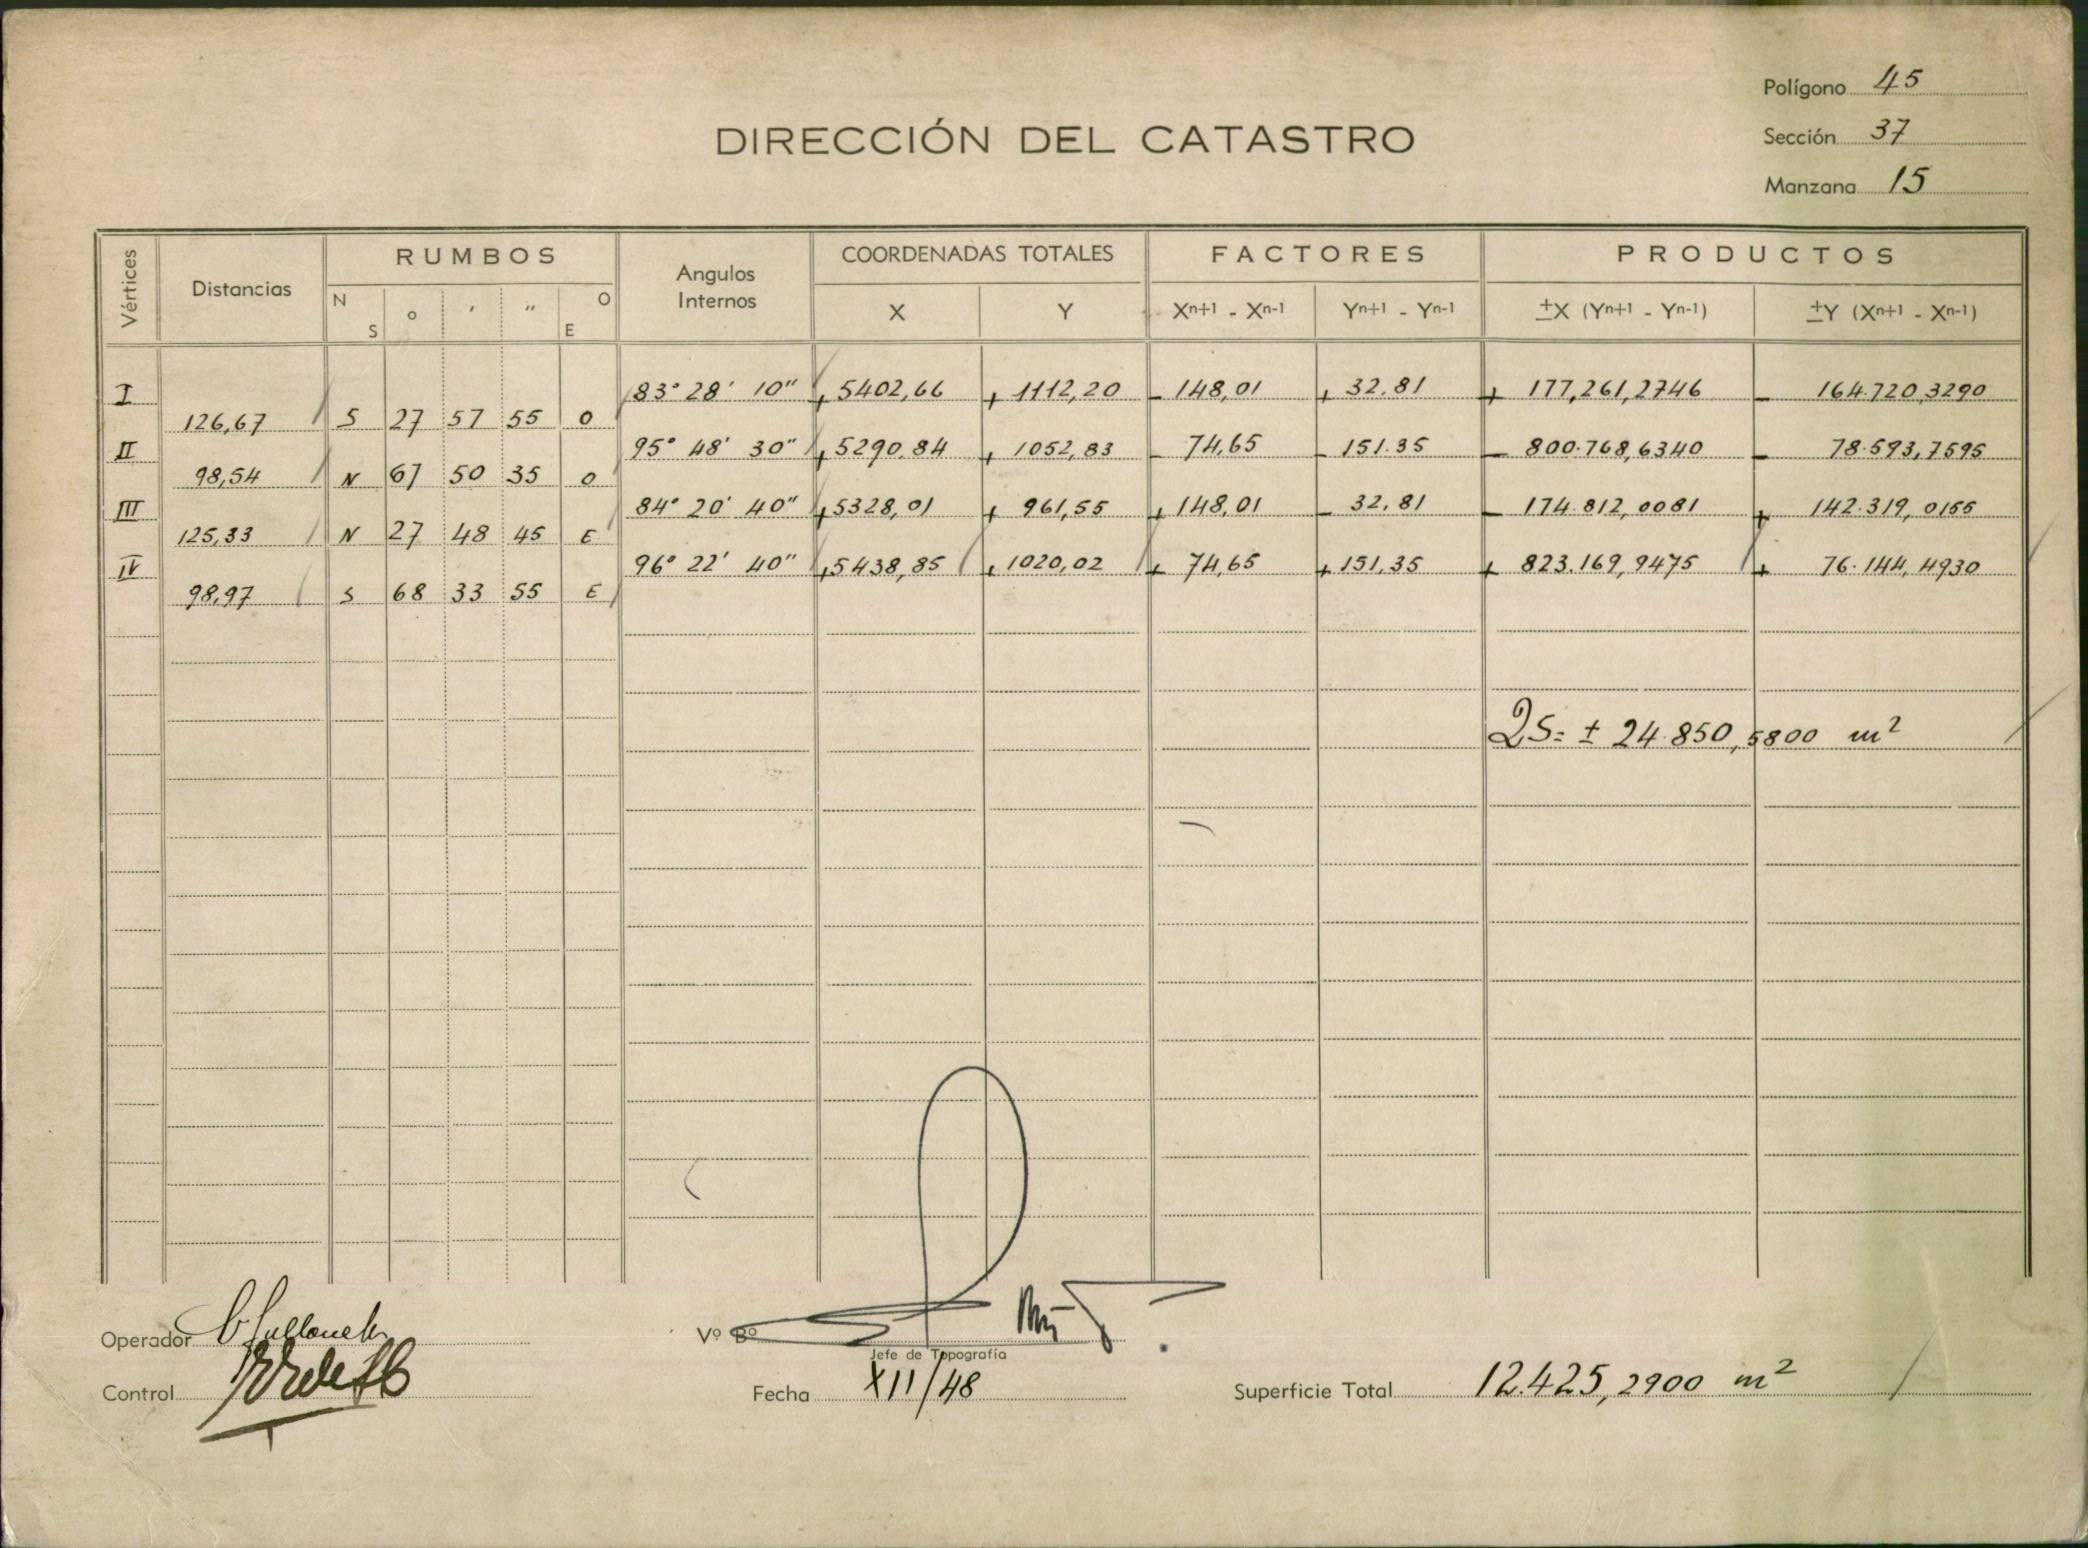 Polígono 45
DIRECCIÓN DEL CATASTRO
Sección 37
Manzana 15
Vértices Distancias RUMBOS Angulos Internos COORDENADAS TOTALES FACTORES PRODUCTOS
N S ° ' " O E X Y Xn+1 - Xn-1 Yn+1 - Yn-1 ±X (Yn+1 - Yn-1) ±Y (Xn+1 - Xn-1)
I 83° 28' 10" + 5402,66 + 1112,20 - 148,01 + 32,81 + 177,261,2746 - 164.720,3290
126,67 S 27 57 55 O
II 95° 48' 30" + 5290,84 + 1052,83 - 74,65 - 151.35 - 800.768,6340 - 78.593,7595
98,54 N 67 50 35 O
III 84° 20' 40" + 5328,01 + 961,55 + 148,01 - 32,81 - 174.812,0081 + 142.319,0155
125,33 N 27 48 45 E
IV 96° 22' 40" + 5438,85 + 1020,02 + 74,65 + 151,35 + 823.169,9475 + 76.144,4930
98,97 S 68 33 55 E
2S= ± 24.850,5800 m²
Operador
Vº Bº
Jefe de Topografía
Control
Fecha XII/48
Superficie Total 12.425,2900 m²